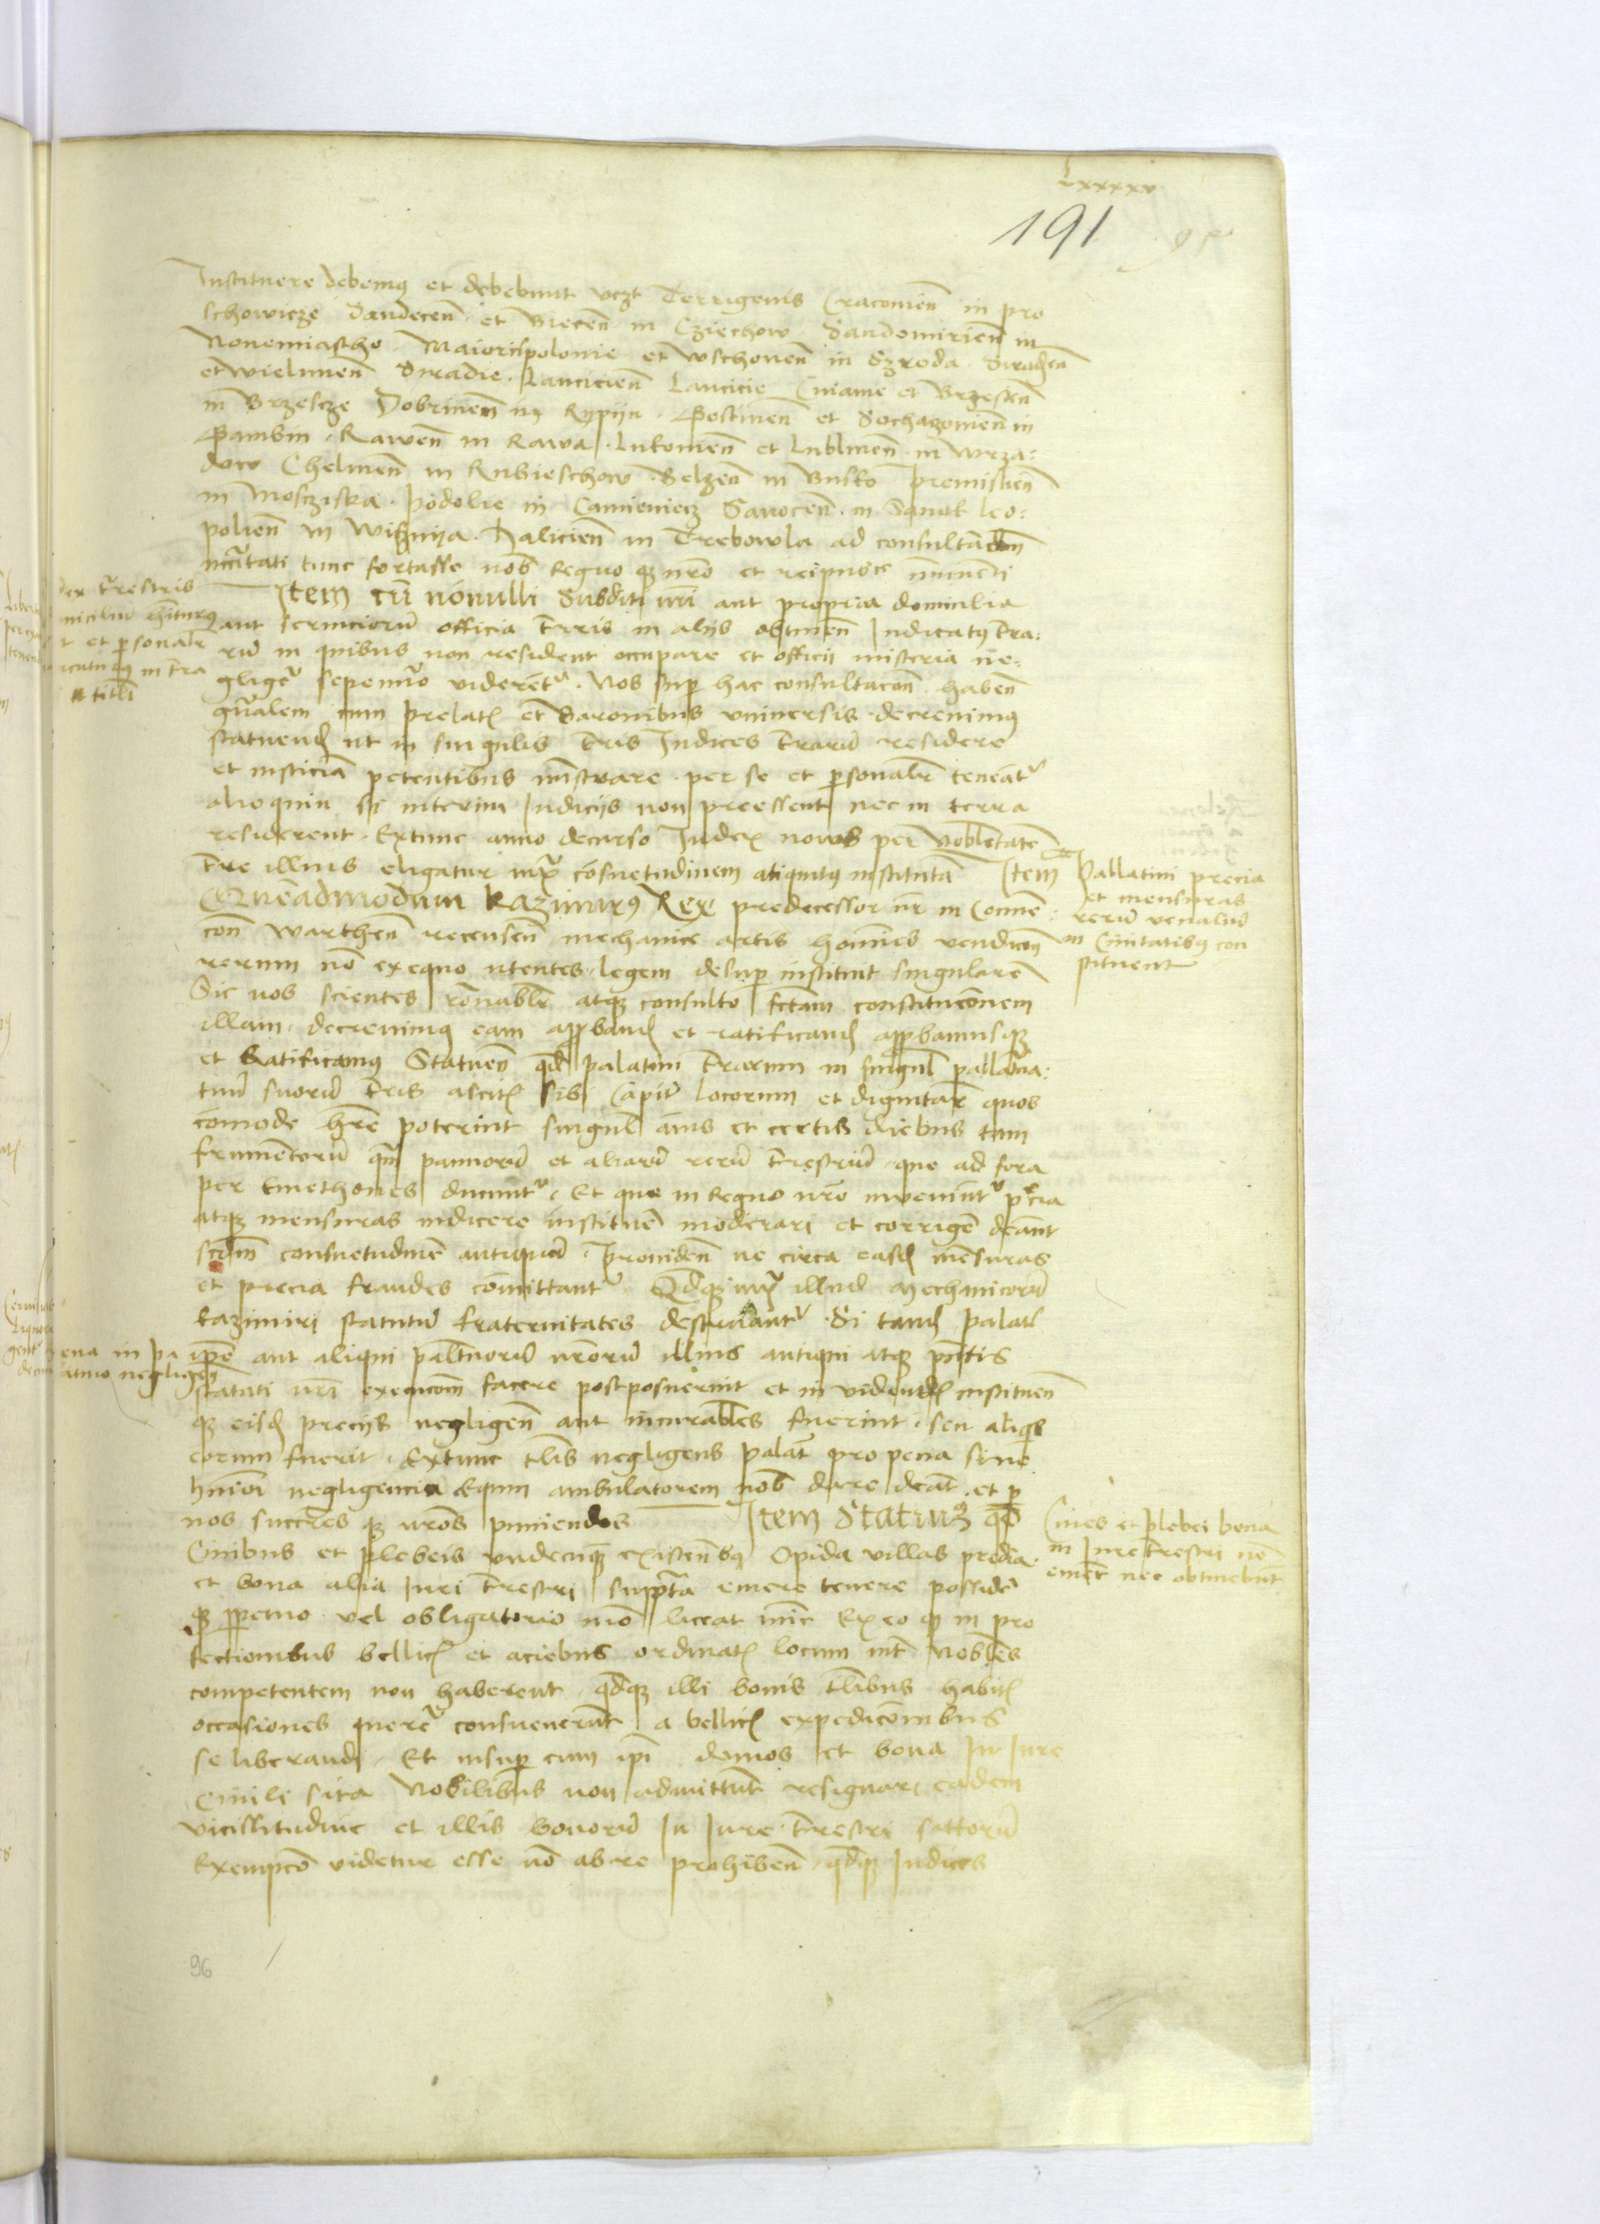 Lxxxxv
191
Instituere debemus et debebunt vczt Terrigenis Cracouien in pro
schowicze Sandecen et Biecen in Cziechow Sandomirien in
Nouemiastho Maiorispolonie et wschouen in Szroda Siradien
et Wielunen Siradie Lancicien Lancicie Cuiauie et Brzesten
in Brzescze Dobrinen in Rypijn Gostinen et Sochazouien in
Gambin Rawen in Rawa Lukouien et Lublinen in Wrza:
dow Chelmen in Rubieschow Belzen in Busko Premislien
in Mosczyska Podolie in Camieniecz Sanocen in Sanok leo:
polien in Wisznija Halicien in Trebowla ad consultandum
necessitati tunc fortasse nob Regno qz nro et reipublice iminenti
Item cu nonulli Subditi nri aut propria domicilia
aut seruiciorum officia terris in aliis obtinen Iudicatus terra:
rum in quibus non resident occupare et officij misteria ne:
gligere sepenumero viderentur Nos super hac consultacone haben
generalem cum prelatis et Baronibus vniuersis decreuimus
statuend ut in singulis terris Iudices terrarum residere
et iusticiam petentibus ministrare per se et personaliter teneantur
alioquin si interim Iudicijs non preessent nec in terra
residerent Extunc anno decurso Iudex nouus per Nobilitatem
terre illius eligatur iuxta consuetudinem antiquitus institutam Item
Queadmodum Kazimirus Rex predecessor nr in Conuen:
con Warthen recensen mechanice artis homines vendicon
rerum no ex equo utentes legem desuper instituit singularem
Sic nos scientes ronabile atqz consulto factam constitucionem
illam decreuimus eam approband et ratificand approbamusqz
et Ratificamus Statuen qd palatini terrarum in singul pallatina:
tuum suorum terris ascitis sibi Capit locorum et dignitar quos
comode habere poterint singul annis et certis diebus tam
frumentorum quam pannorum et aliarum rerum terrestrium que ad fora
per kmethones ducuntur Et que in Regno nro inueniuntur precia
atqz mensuras indicere instituere moderari et corrigere debeant
secundum consuetudinem antiquam Prouiden ne circa easdem mensuras
et precia fraudes comittantur Qdqz iuxta illud Mechanicorum
Kazimiri statutum fraternitates destruantur Si tamen palati
ipse aut aliqui palatinorum nrorum illius antiqui atqz pntis
statuti nri execucom facere postposuerint et in vidend instituen
qz eisdem precijs negligen aut incurabiles fuerint seu aliquis
eorum fuerit Extunc talis negligens palat pro pena sine
huiusmodi negligencia Equum ambulatorem nob dare debeat et per
nos succres qz nros puniendos Item Statuimus qd
Ciuibus et plebeis vndecunqz existentibus Opida villas predia
et bona alia Iuri terrestri supposita emere tenere possidere
qz perpetuo vel obligatorio modo liceat minime Ex eo qz in pro
tectionibus bellicis et aciebus ordinatis locum inter Nobiles
competentem non haberent qdqz illi bonis talibus habitis
occasiones querere consueuerunt a bellicis expedicionibus
se liberandi Et insuper cum ipsi domos et bona In Iure
Ciuili sita Nobilibus non admittunt resignari eadem
vicissitudine et illis bonorum In Iure terrestri sitorum
Exempcio videtur esse no abs re prohiben qdqz Iudices
dex terrestris
micilium habiturus
r et personaliter
in terra
titli
Pallatini precia
et mensuras
rerum venalium
in Ciuitatibus con
stituent
ena in pa
latino negligen
Ciues et plebei bona
in Iure terrestri no
ement nec obtinebunt
96